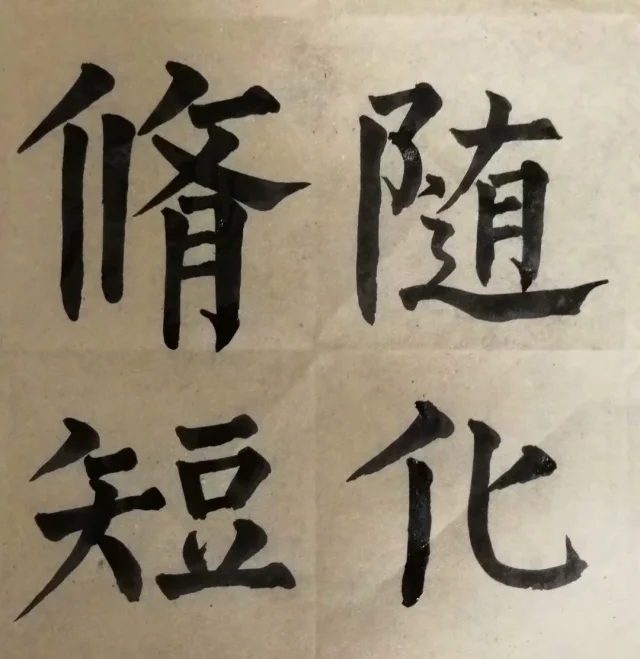 脩短
随化